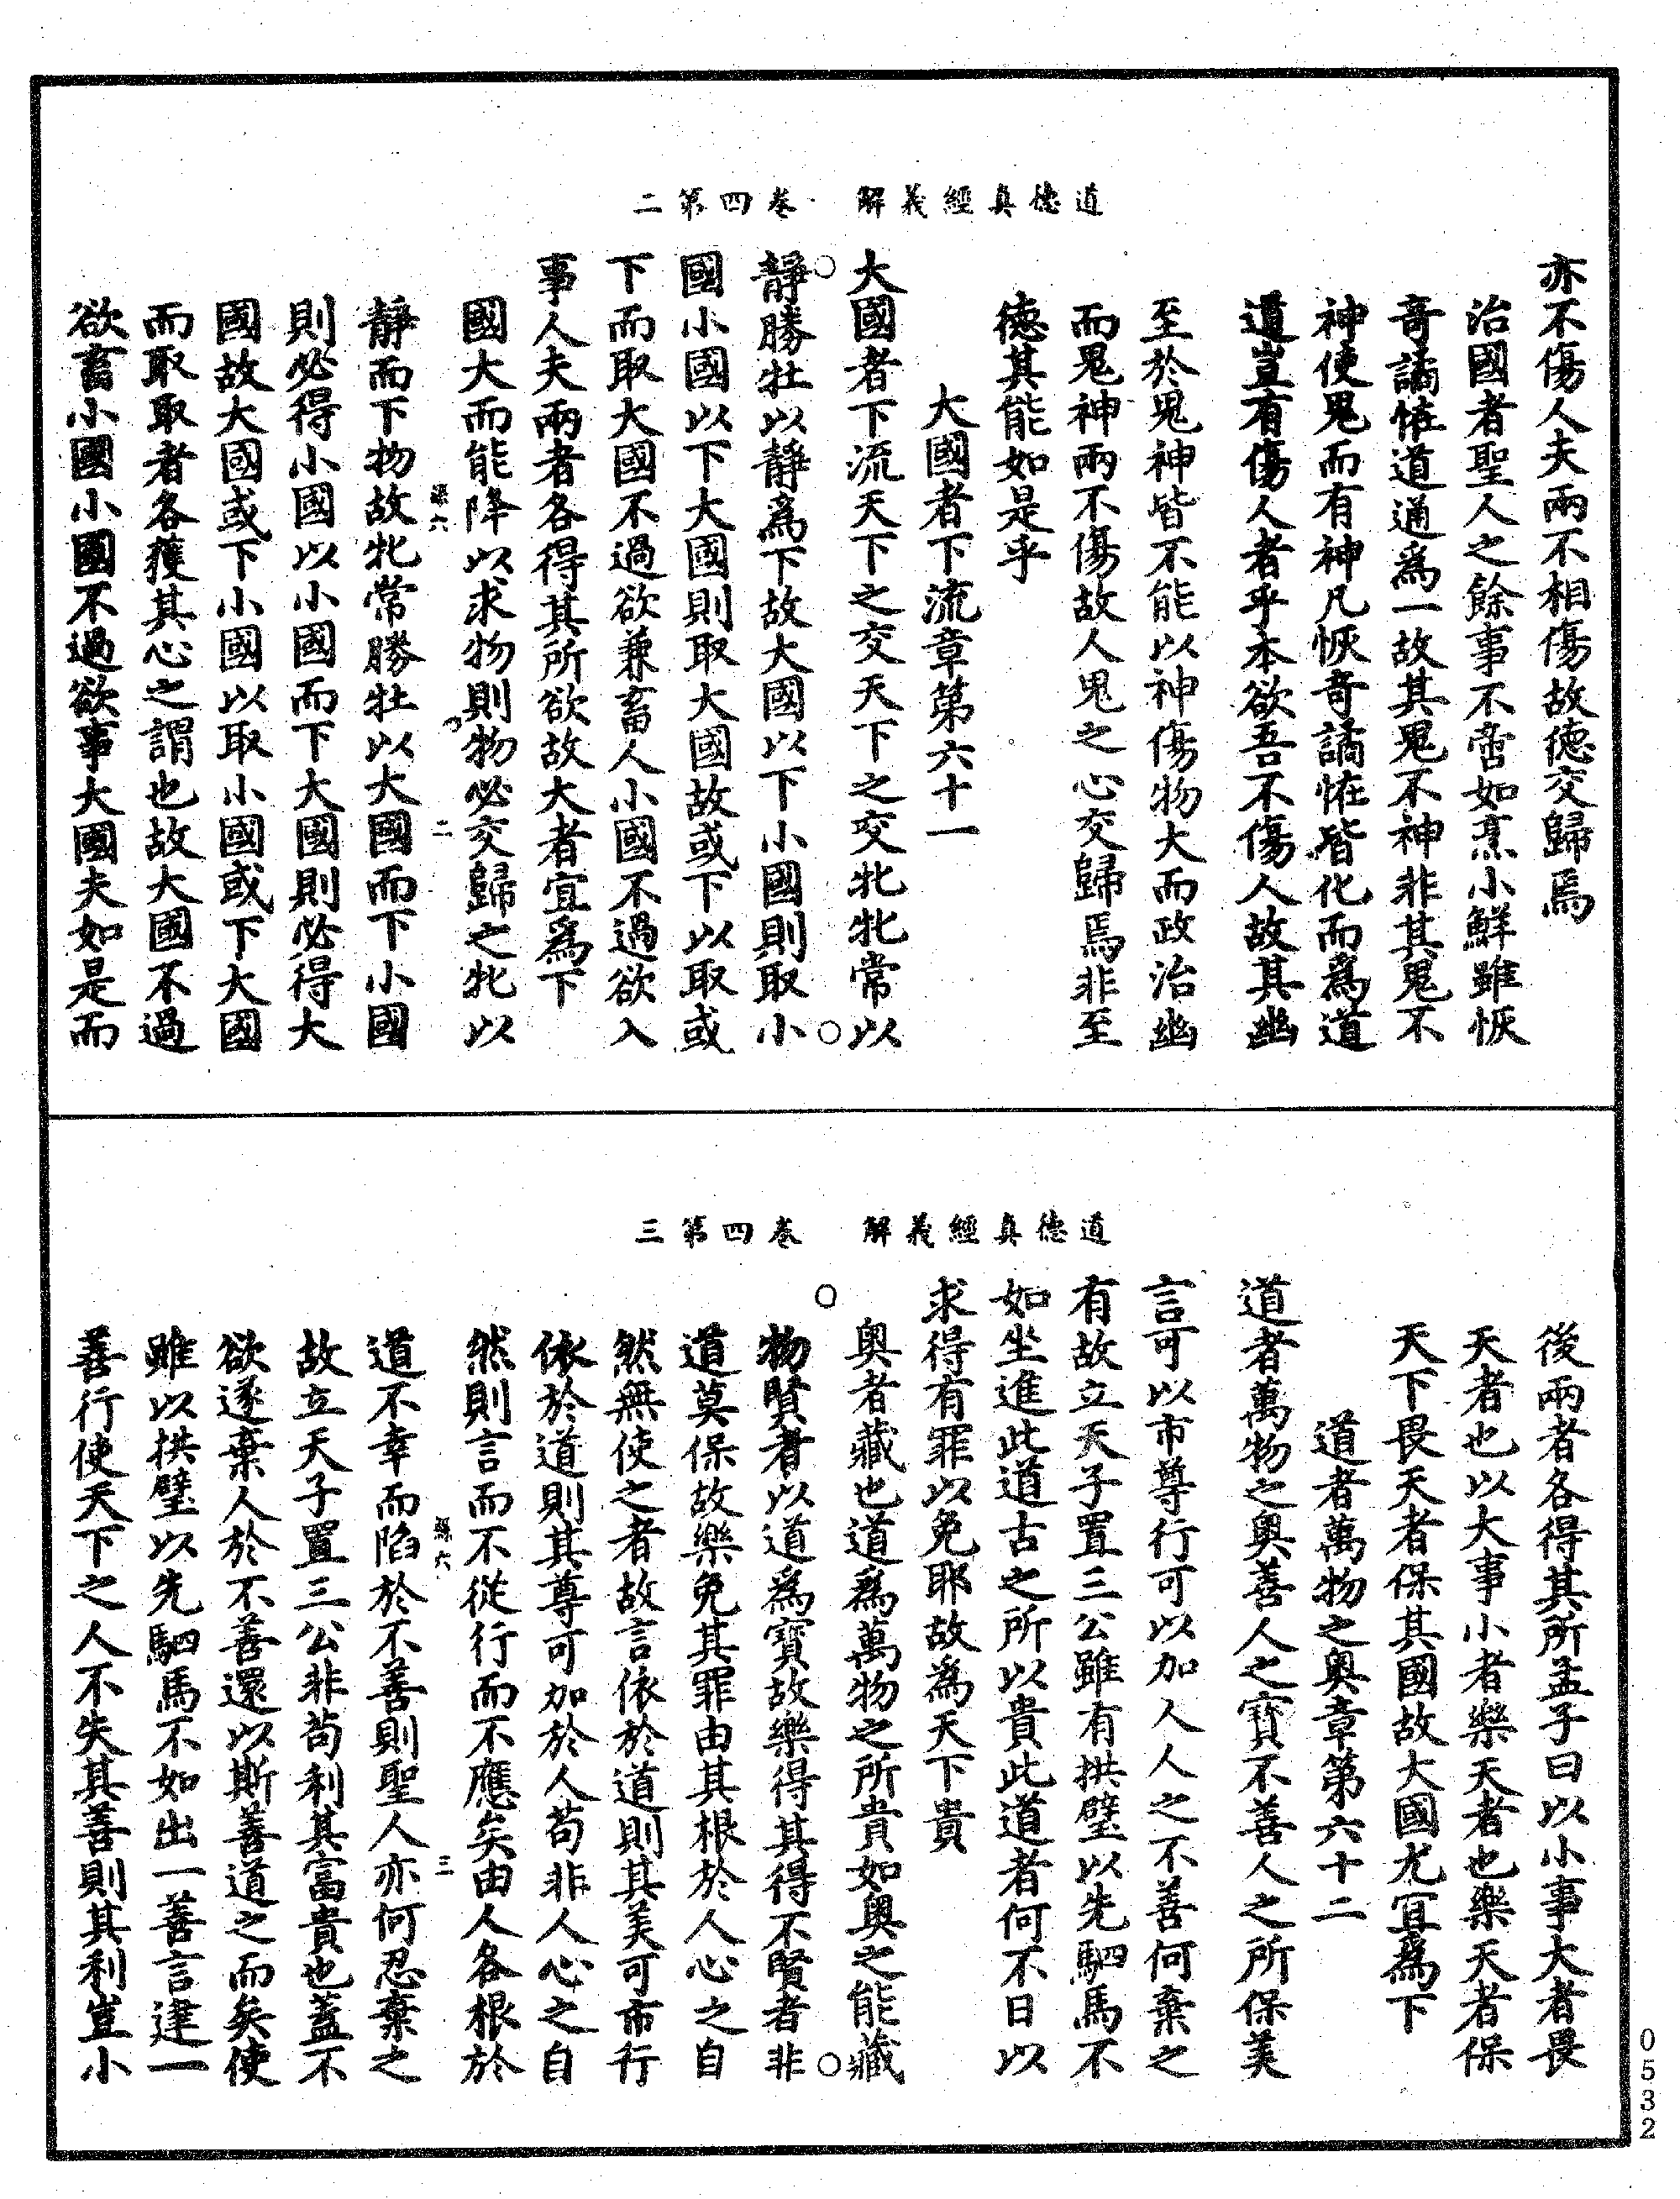 道德真經義解　卷四第二
亦不傷人夫兩不相傷故德交歸焉
治國者聖人之餘事不啻如烹小鮮雖恢
奇譎恠道通爲一故其鬼不神非其鬼不
神使鬼而有神凡恢奇譎恠皆化而爲道
道豈有傷人者乎本欲吾不傷人故其幽
至於鬼神皆不能以神傷物大而政治幽
而鬼神兩不傷故人鬼之心交歸焉非至
德其能如是乎
大國者下流章第六十一
大國者下流天下之交天下之交牝牝常以
靜勝牡以靜爲下故大國以下小國則取小
國小國以下大國則取大國故或下以取或
下而取大國不過欲兼畜人小國不過欲入
事人夫兩者各得其所欲故大者宜爲下
國大而能降以求物則物必交歸之牝以
二
靜而下物故牝常勝牡以大國而下小國
則必得小國以小國而下大國則必得大
國故大國或下小國以取小國或下大國
而取取者各獲其心之謂也故大國不過
欲畜小國小國不過欲事大國夫如是而
道德真經義解　卷四第三
後兩者各得其所孟子曰以小事大者畏
天者也以大事小者樂天者也樂天者保
天下畏天者保其國故大國尤宜爲下
道者萬物之奧章第六十二
道者萬物之奧善人之寶不善人之所保美
言可以市尊行可以加人人之不善何棄之
有故立天子置三公雖有拱璧以先駟馬不
如坐進此道古之所以貴此道者何不日以
求得有罪以免耶故為天下貴
奧者藏也道爲萬物之所貴如奧之能藏
物賢者以道爲寶故樂得其得不賢者非
道莫保故樂免其罪由其根於人心之自
然無使之者故言依於道則其美可市行
依於道則其尊可加於人苟非人心之自
然則言而不從行而不應矣由人各根於
三
道不幸而陷於不善則聖人亦何忍棄之
故立天子置三公非苟利其富貴也蓋不
欲遂棄人於不善還以斯善道之而矣使
雖以拱璧以先駟馬不如出一善言建一
善行使天下之人不失其善則其利豈小
0532